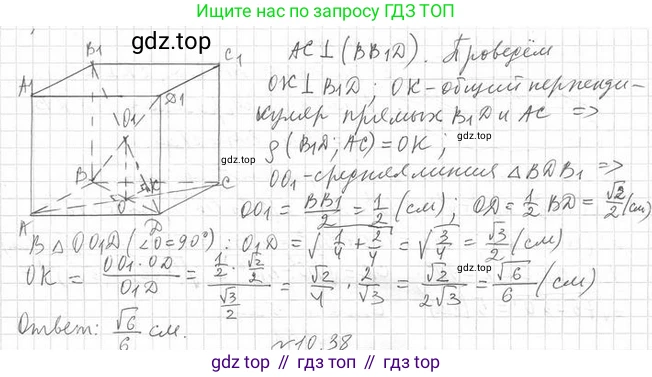 Ищите нас по запросу ГДЗ ТОП
gdz.top
B1 C1 A1 D1 O1 B C K O A D
AC ⊥ (BB1D). Проведём
OK ⊥ B1D; OK - общий перпенди-
куляр прямых B1D и AC =>
ρ(B1D; AC) = OK;
gdz.top
OO1 - средняя линия △BDB1 =>
OO1 = BB1/2 = 1/2 (см); OD = 1/2 BD = √2/2 (см)
В △OO1D (∠O=90°): O1D = √(1/4 + 2/4) = √(3/4) = √3/2 (см)
OK = (OO1·OD)/O1D = (1/2 · √2/2)/(√3/2) = √2/4 · 2/√3 = √2/(2√3) = √6/6 (см)
gdz.top
Ответ: √6/6 см.
№10.38
gdz top // гдз топ // gdz top // гдз топ